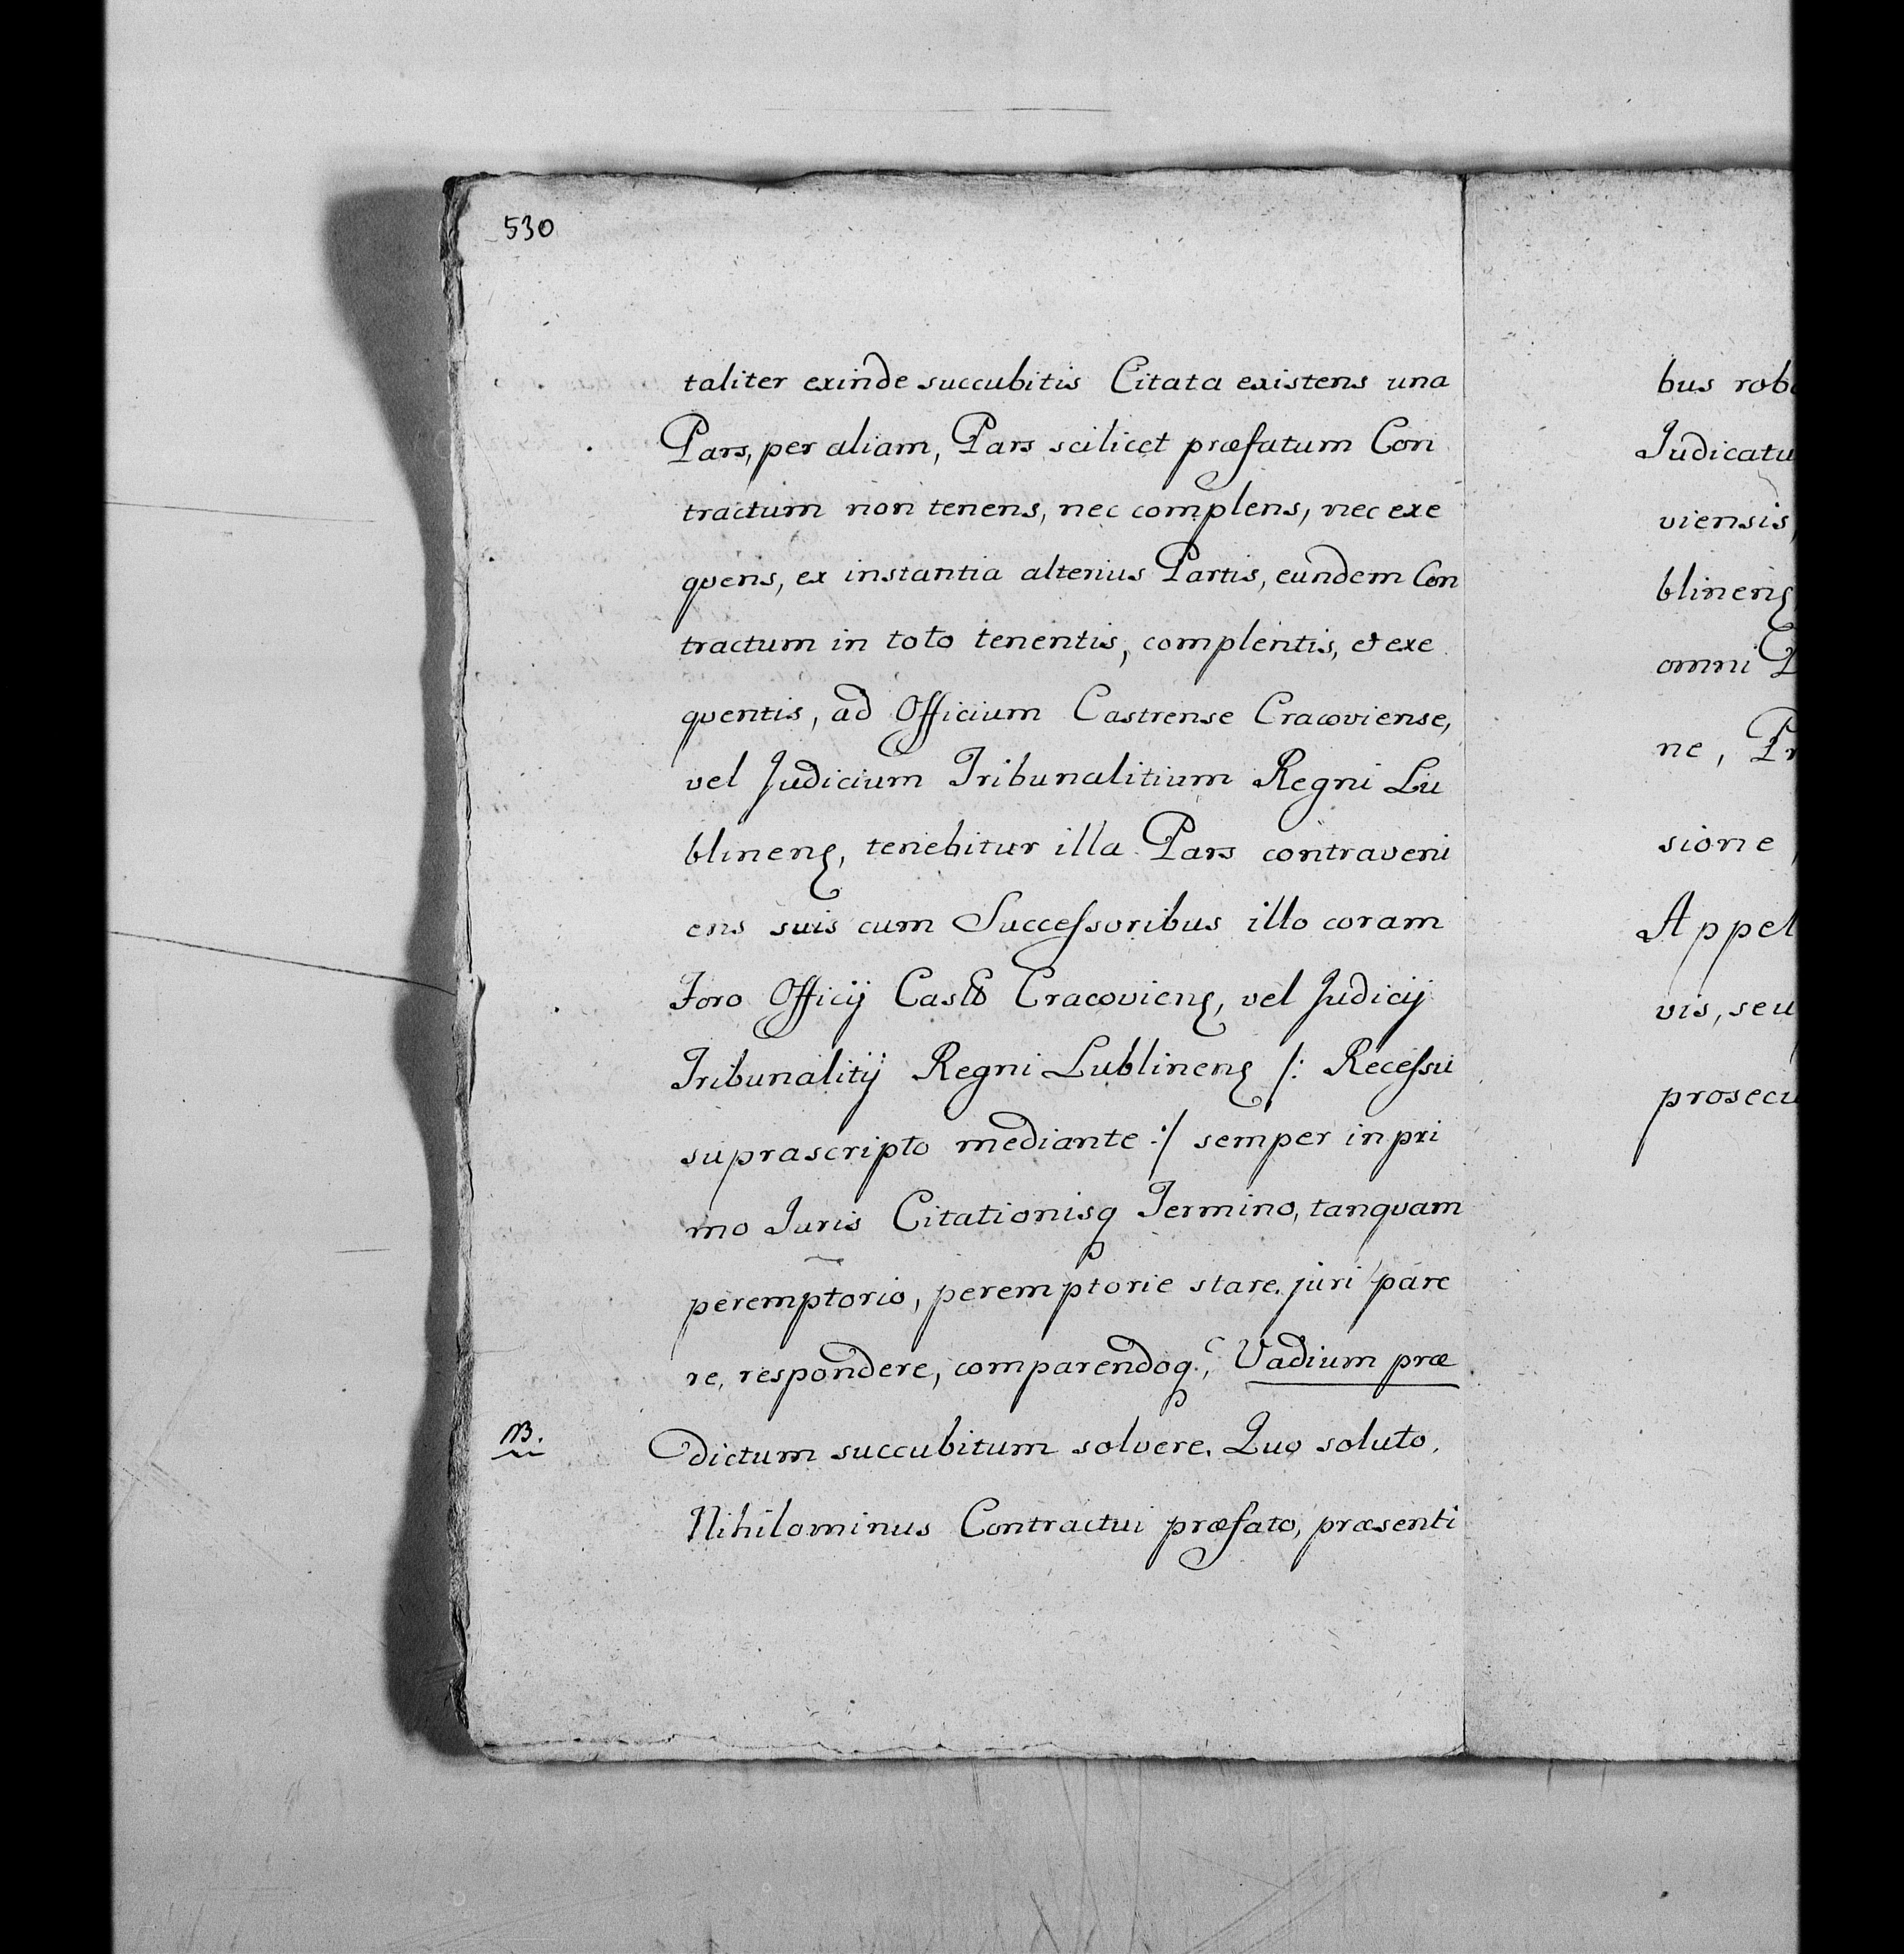 530
taliter exinde succubitis Citata existens una
Pars, per aliam, Pars scilicet præfatum Con
tractum non tenens, nec complens, nec exe
qvens, ex instantia alterius Partis, eundem Con
tractum in toto tenentis, complentis, et exe
qventis, ad Officium Castrense Cracoviense,
vel Judicium Tribunalitium Regni Lu
blinens, tenebitur illa Pars contraveni
ens suis cum Successoribus illo coram
Foro Officij Cracoviens, vel Judicij
Tribunalitij Regni Lublinens /: Recessu
suprascripto mediante :/ semper in pri
mo Juris Citationisq Termino, tanqvam
peremptorio, peremptorie stare, juri pare
re, respondere, comparendoq, Vadium præ
NB.
dictum succubitum solvere. Quo soluto,
Nihilominus Contractui præfato, præsenti
bus rob
Judicatu
viensis,
blinens
omni P
ne, Pr
sione
Appel
vis, seu
prosecu